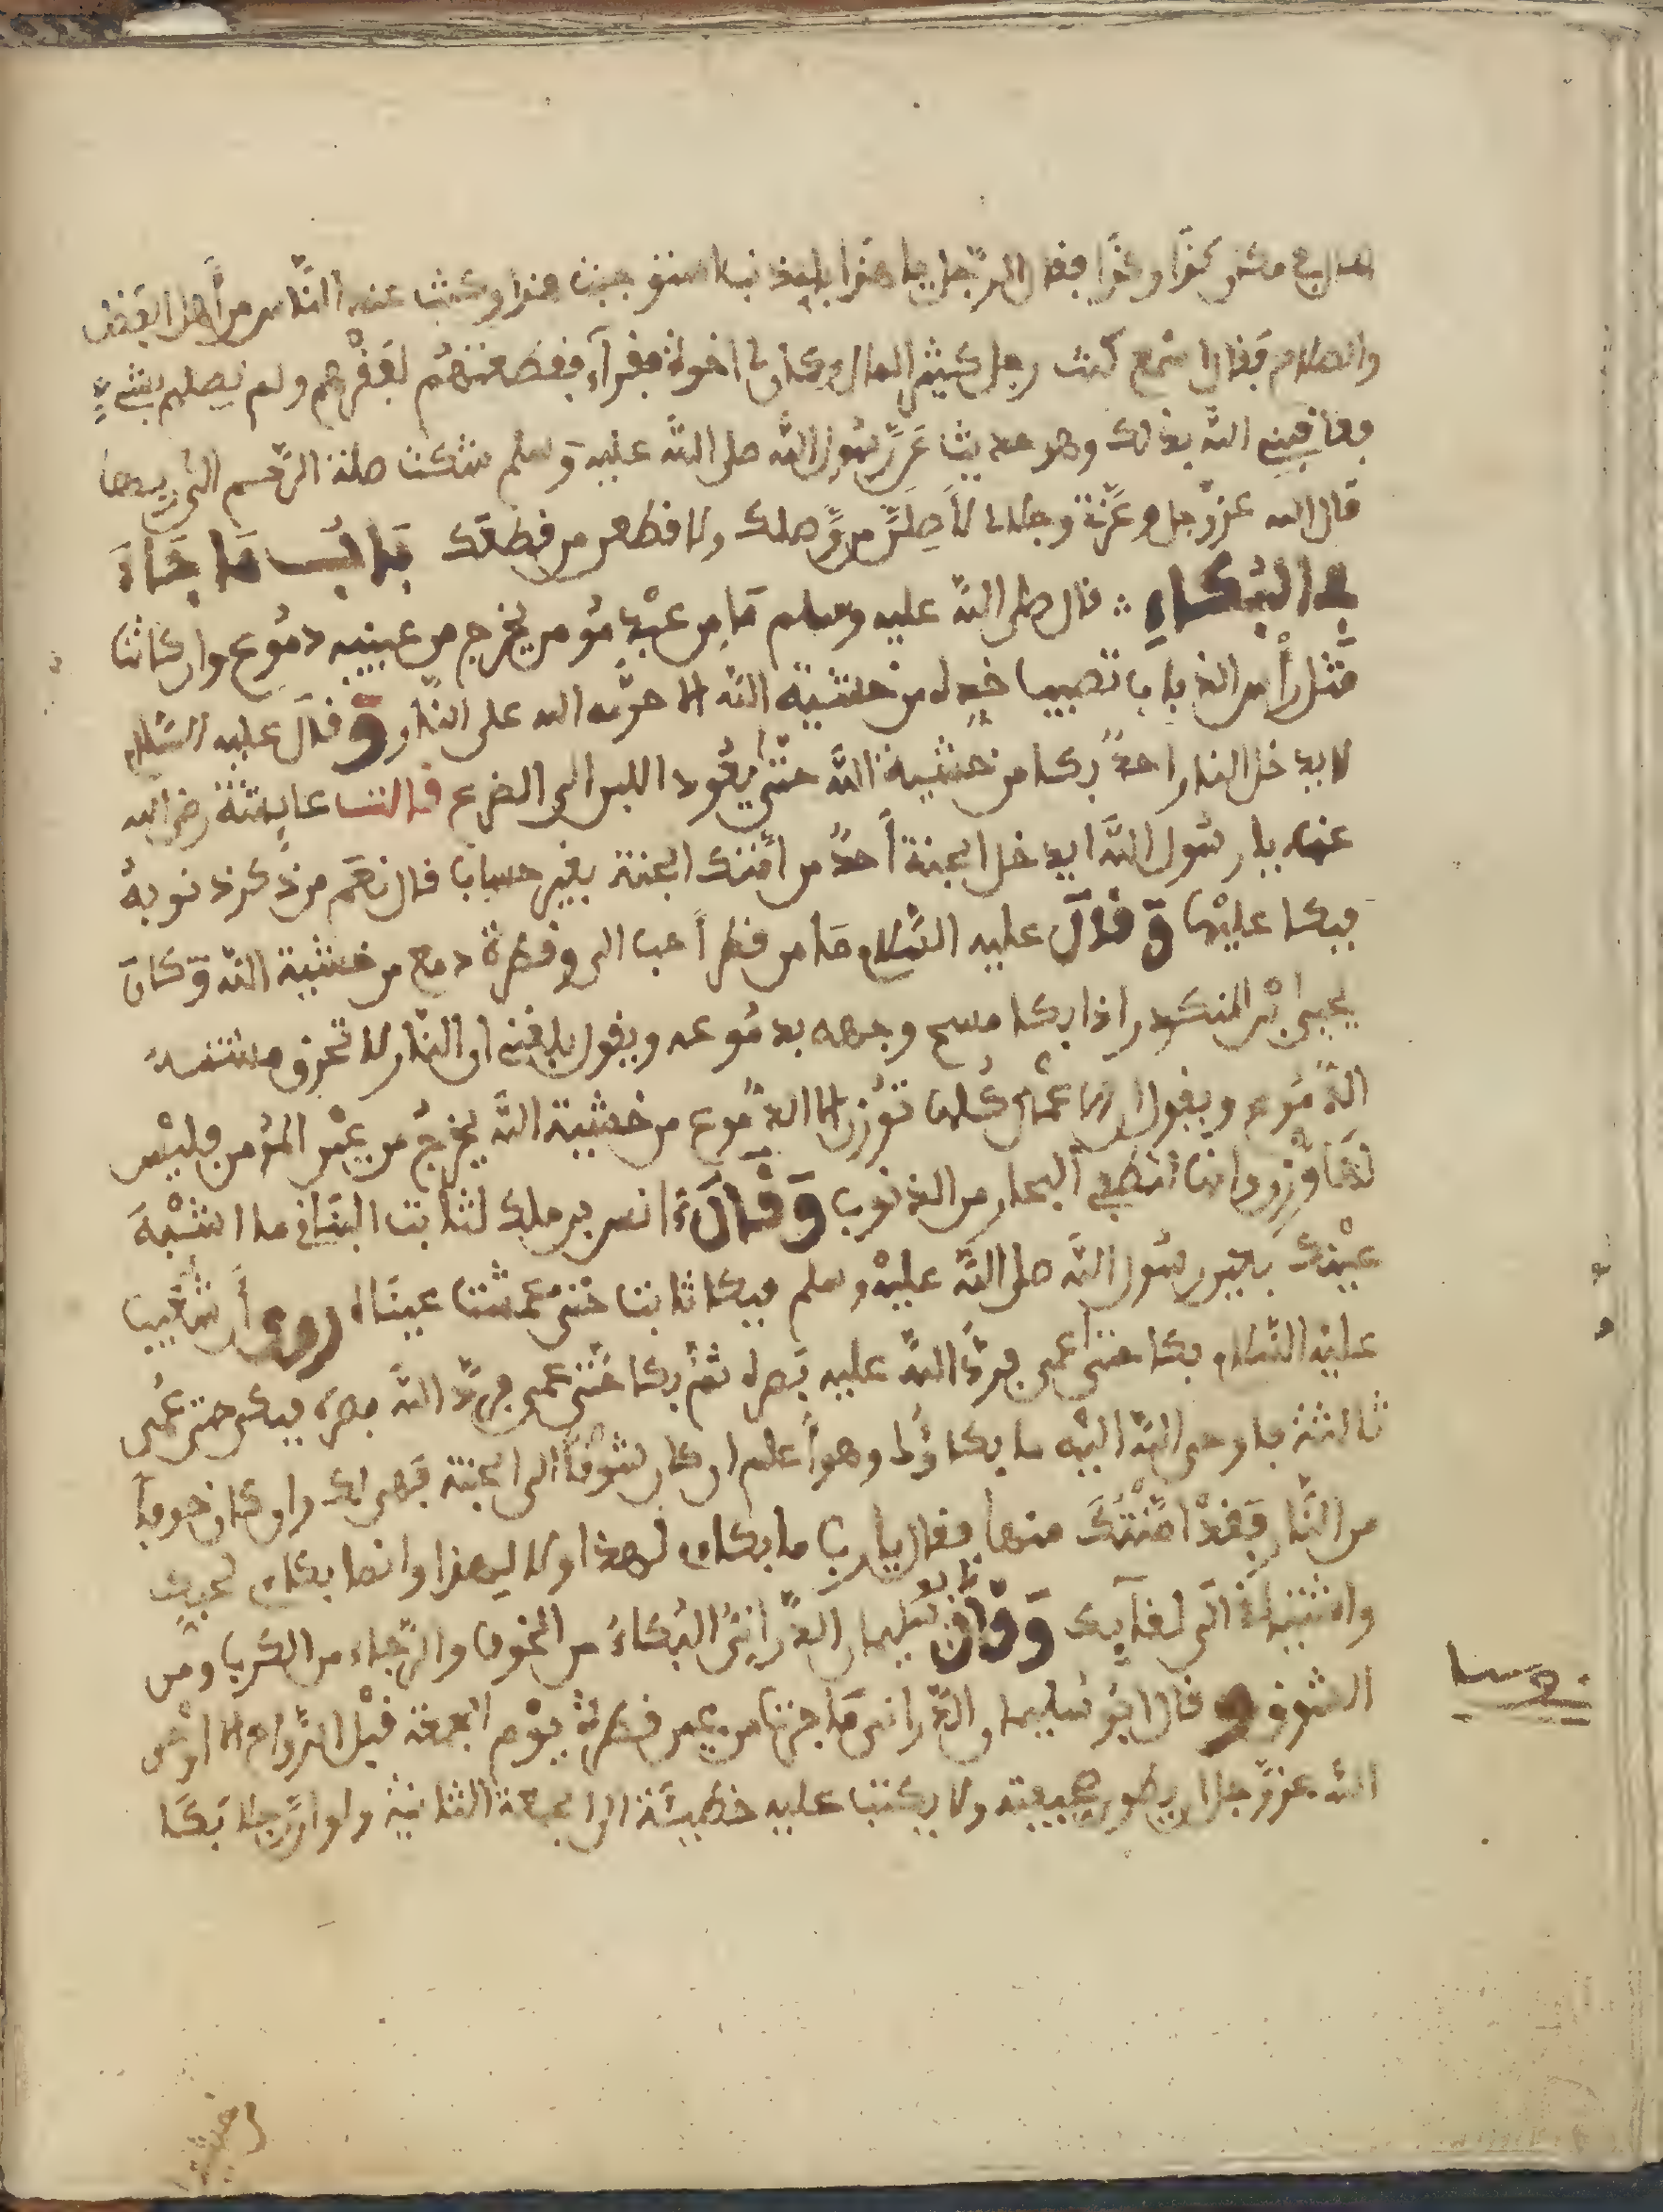 فقال الرجل يا هذا باي ذنب استوجبت هذا وكنت عند الناس من أهل الفضل
والصلاح فقال اسمع كنت رجل كثير المال وكان لي اخواة فقرآء فقطعتهم لفقرهم ولم نصلهم بشيء
فعاقبني الله بذالك وهو حديث عن رسول الله صلى الله عليه وسلم شكت صلة الرحم الى ربها
قال الله عز وجل وعزتي وجلالي لأصلن من وصلك ولا قطعن من قطعك باب ما جاء
في البكاء قال صلى الله عليه وسلم ما من عبد مؤمن يخرج من عينيه دموع وان كانت
مثل رأس الذباب تصيب خده من خشية الله الا حرمه الله على النار وقال عليه السلام
لا يدخل النار احد بكا من خشية الله حتى يعود اللبن الى الضرع قالت عايشة رضي الله
عنها يا رسول الله ايدخل الجنة أحد من امتك الجنة بغير حساب قال نعم من ذكر ذنوبه
فبكا عليها وقال عليه السلام ما من قطر أحب الى وقطرة دمع من خشية الله وكان
يحيى بن المنكدر اذا بكا مسح وجهه بدموعه ويقول بلغني ان النار لا تحرق مسته
الدموع ويقول ان الاعمال كلها توزن الا الدموع من خشية الله يخرج من عين المؤمن فليس
لها وزن وانها تطفي البحار من الذنوب وقال انس بن ملك لثابت البناني ما اشبه
عينك بعين رسول الله صلى الله عليه وسلم فبكا ثابت حتى عمشت عيناه روى أن شعيب
عليه السلام بكا حتى عمى فرد الله عليه بصره ثم بكا حتى عمى فرد الله بصره فبكى حتى عمى
ثالثة فاوحى الله اليه ما بكاؤك وهو أعلم ان كان شوقا الى الجنة فهى لك وان كان خوفا
من النار فقد امنتك منها فقال يارب ما بكاى لهذا ولا لهذا وانما بكاى لحبك
واشتياقا الى لقآيك وقال ابو سليمان الدرانى البكاء من الخوف والرجاء من الكرب ومن
الشوق وقال ابو سليمان الدرانى ما جرت من عين قطرة يوم الجمعة قبل الزوال الا اوحى
الله عز وجل ان يطوى صحيفته ولا يكتب عليه خطيئة الى الجمعة الثانية ولو ان رجلا بكا